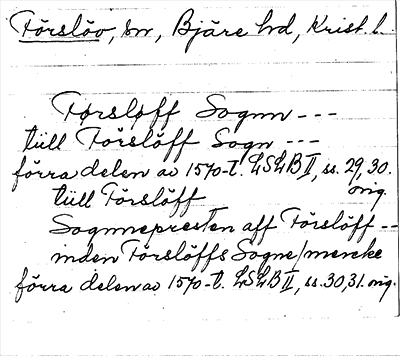 Förslöv, sn, Bjäre hd, Krist. l.
Førsløff Sognn ---
tüll Förslöff Sogn ---
förra delen av 1570-t. LSLB II, ss. 29, 30.
orig.
tüll Förslöff
Sognnepresten aff Förslöff --
inden Förslöffs Sogne/mercke
förra delen av 1570-t. LSLB II, ss. 30, 31. orig.